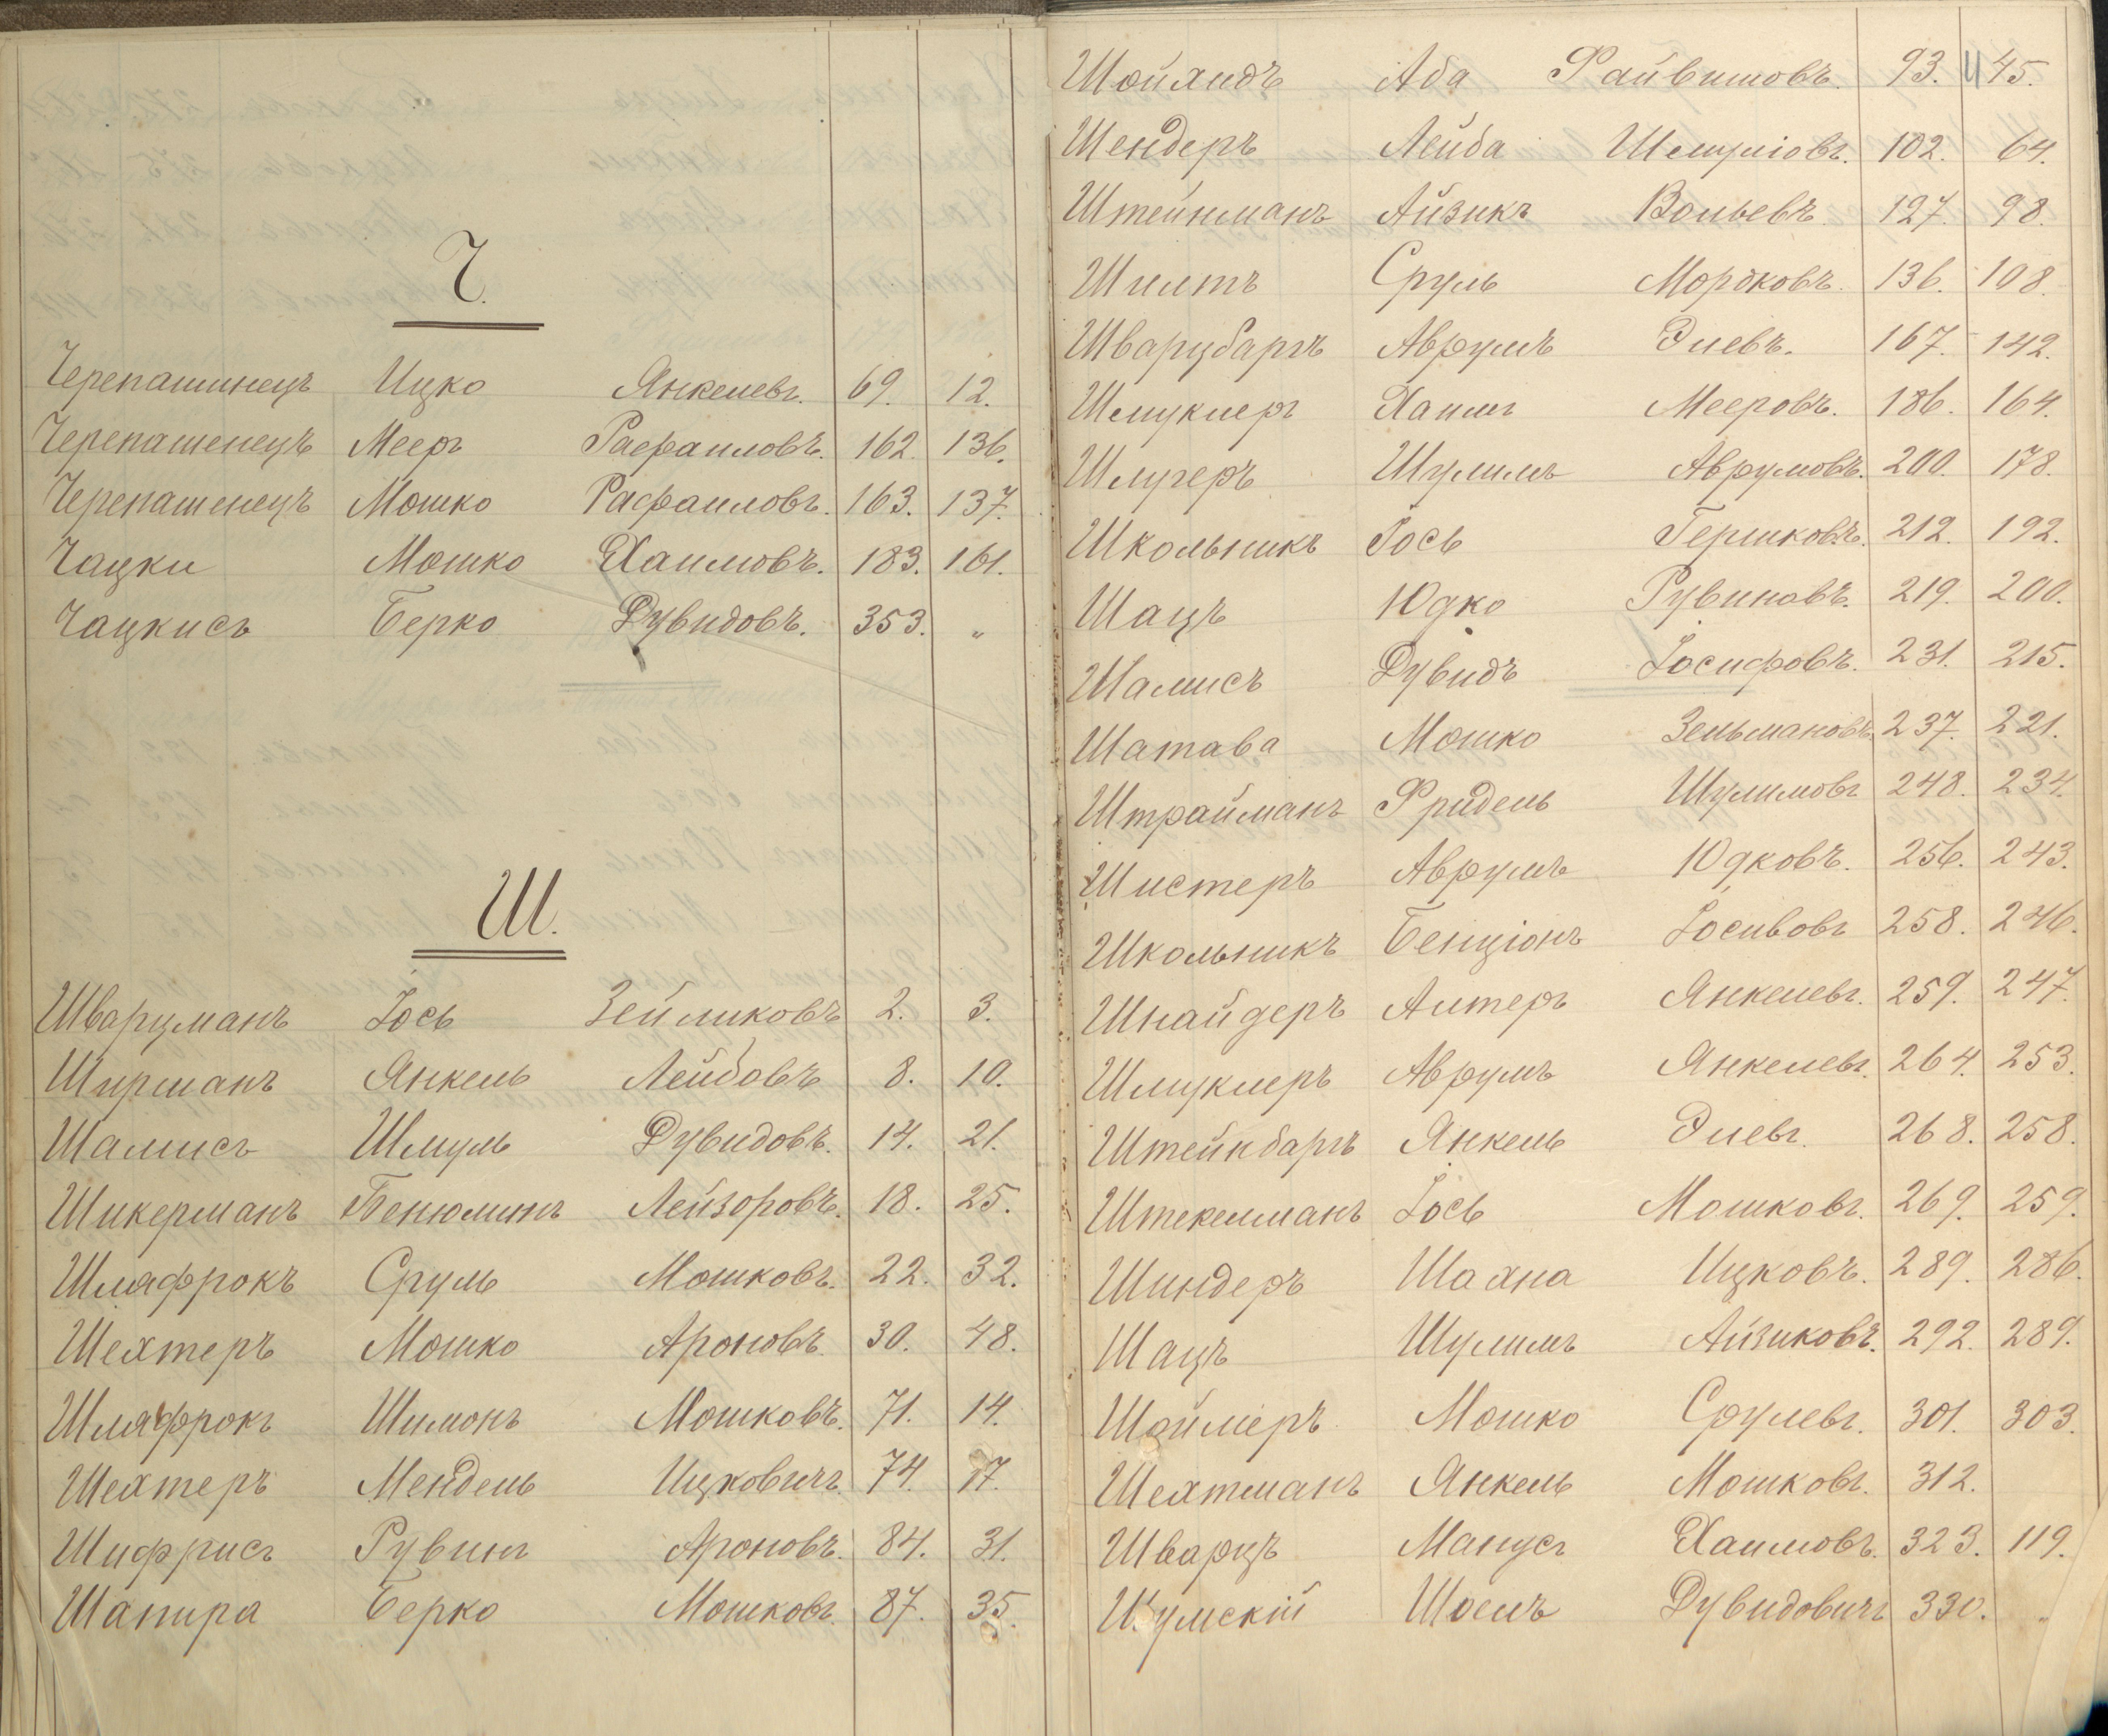 Ч.
Черепашинецъ Ицко Янкелевъ. 69. 12.
Черепашенецъ Мееръ Рафаиловъ. 162. 136.
Черепашенецъ Мошко Рафаиловъ. 163. 137.
Чацки Мошко Хаимовъ. 183. 161.
Чацкисъ Берко Дувидовъ. 353. „
Ш.
Шварцманъ Іось Зейликовъ 2. 3.
Ширманъ Янкель Лейбовъ 8. 10.
Шамисъ Шмуль Дувидовъ. 14. 21.
Шикерманъ Бенюминъ Лейзоровъ. 18. 25.
Шляфрокъ Сруль Мошковъ. 22. 32.
Шехтеръ Мошко Ароновъ. 30. 48.
Шляфрокъ Шимонъ Мошковъ. 71. 14.
Шехтеръ Мендель Ицковичъ. 74. 17.
Шифрисъ Рувинъ Ароновъ. 84. 31.
Шапира Берко Мошковъ. 87. 35.
Шойхидъ Аба Файвишовъ. 93. 45.
Шендеръ Лейба Шмуліовъ. 102. 64.
Штейнманъ Айзикъ Вольевъ. 127. 98.
Шилтъ Сруль Мордковъ. 136. 108.
Шварцбаргъ Аврумъ Элевъ. 167. 142.
Шмуклеръ Хаимъ Мееровъ. 186. 164.
Шлугеръ Шулимъ Аврумовъ. 200. 178.
Школьникъ Іось Гершковъ. 212. 192.
Шацъ Юдко Рувиновъ. 219. 200.
Шамисъ Дувидъ Іосифовъ. 231. 215.
Шатава Мошко Зельмановъ. 237. 221.
Штрайманъ Фридель Шулимовъ 248. 234.
Шистеръ Аврумъ Юдковъ. 256. 243.
Школьникъ Бенціонъ Іосивовъ 258. 246.
Шнайдеръ Алтеръ Янкелевъ. 259. 247.
Шмуклеръ Аврумъ Янкелевъ. 264. 253.
Штейнбаргъ Янкель Элевъ. 268. 258.
Штекелманъ Іось Мошковъ. 269. 259.
Шиндеръ Шахна Ицковъ. 289. 286.
Шацъ Шулимъ Айзиковъ. 292. 289.
Шоймеръ Мошко Срулевъ. 301. 303.
Шехтманъ Янкель Мошковъ. 312.
Шварцъ Манусъ Хаимовъ. 323. 119.
Шумскій Шоелъ Дувидовичъ 330. „